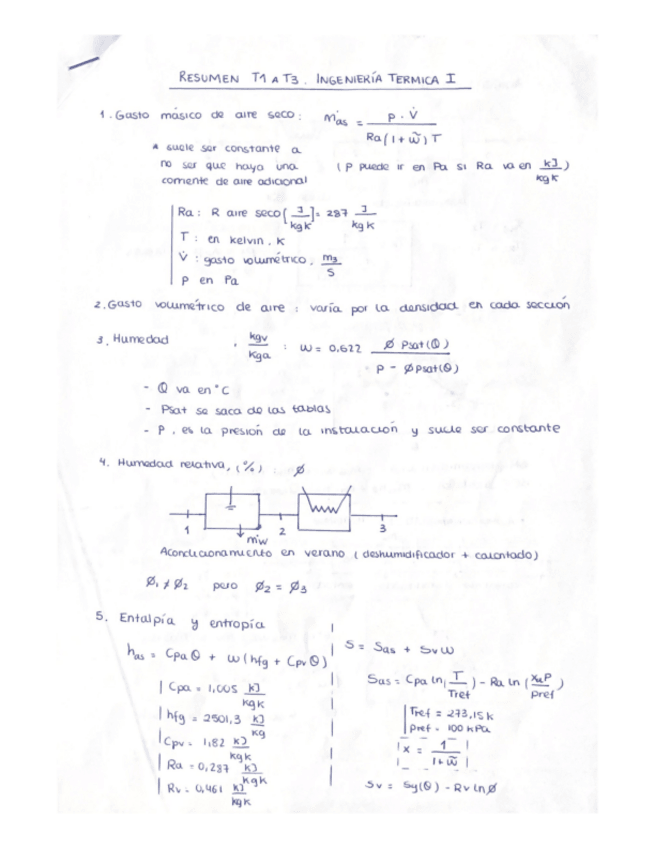 RESUMEN T1 A T3. INGENIERÍA TERMICA I
1. Gasto másico de aire seco: ṁas = p · V̇ / Ra(1 + w̃)T
* suele ser constante a
no ser que haya una
corriente de aire adicional
(P puede ir en Pa si Ra va en kJ/kgK)
Ra: R aire seco [J/kgK] = 287 J/kgK
T: en kelvin, K
V̇: gasto volumétrico, m3/s
P en Pa
2. Gasto volumétrico de aire: varía por la densidad en cada sección
3. Humedad, kgv/kga : w = 0,622 Ø Psat(θ) / p - Ø Psat(θ)
- θ va en °C
- Psat se saca de las tablas
- P, es la presión de la instalación y suele ser constante
4. Humedad relativa, (%) Ø
1 ṁw 2 3
Acondicionamiento en verano (deshumidificador + calentado)
Ø1 ≠ Ø2 pero Ø2 = Ø3
5. Entalpía y entropía
has = Cpa θ + w(hfg + Cpv θ)
Cpa = 1,005 kJ/kgK
hfg = 2501,3 kJ/kg
Cpv = 1,82 kJ/kgK
Ra = 0,287 kJ/kgK
Rv = 0,461 kJ/kgK
S = Sas + Sv w
Sas = Cpa ln(T/Tref) - Ra ln(xaP/Pref)
Tref = 273,15 K
Pref = 100 kPa
x = 1/1+w̃
Sv = Sg(θ) - Rv ln Ø